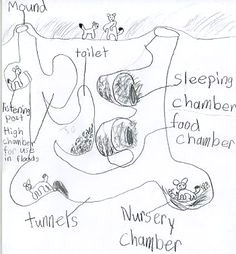 Mound
toilet
sleeping
chamber
food
chamber
listening
post
High
chamber
for use
in floods
tunnels
Nursery
chamber